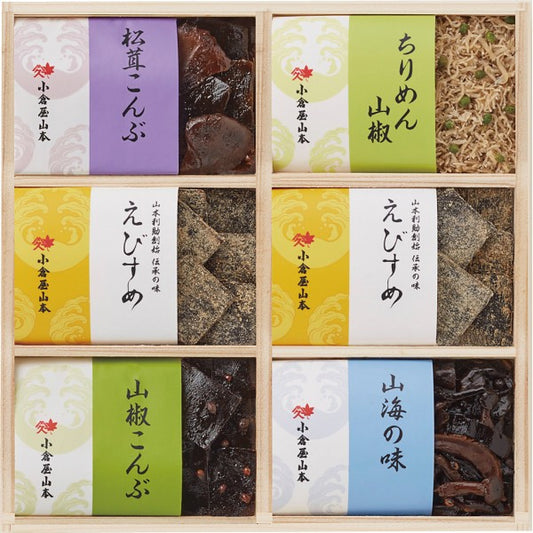 松茸こんぶ
小倉屋山本
ちりめん
山椒
小倉屋山本
山本利助創始 伝承の味
えびすめ
小倉屋山本
山本利助創始 伝承の味
えびすめ
小倉屋山本
山椒こんぶ
小倉屋山本
山海の味
小倉屋山本